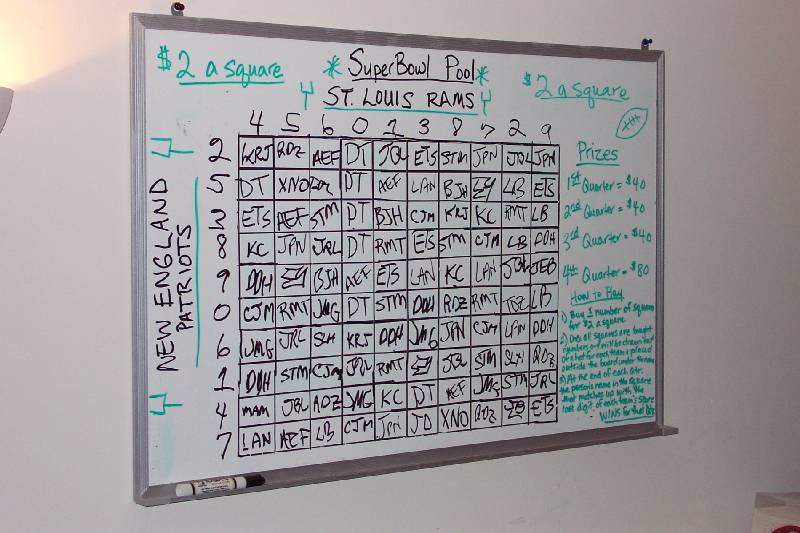 $2 a square
* SuperBowl Pool *
$2 a square
ST. LOUIS RAMS
4 5 6 0 1 3 8 7 2 9
NEW ENGLAND
PATRIOTS
2 KRJ ROZ AEF DT JBL ETS STM JPN JRL JPN
5 DT XNO DT AEF LAN BJH LB ETS
3 ETS AEF STM DT BJH CJM KRJ KC RMT LB
8 KC JPN JRL DT RMT ETS STM CJM LB DDH
9 DDH BJH AEF ETS LAN KC LAN JBL JEB
0 CJM RMT JMG DT STM DDH ROZ RMT LB
6 JMG JRL SLH KRJ DDH JMG JPN CJM LAN DDH
1 DDH STM CJM RMT JBL STM SLH ROZ
4 MAM JBL ROZ JMG KC DT AEF JMG STM JRL
7 LAN AEF LB CJM JPN JD XNO ROZ ETS
Prizes
1st Quarter = $40
2nd Quarter = $40
3rd Quarter = $40
4th Quarter = $80
How to Play
1) Buy # number of squares
for $2 a square
2) Once all squares are bought
numbers will be drawn out
of a hat for each team & placed
outside the board under the name
3) At the end of each Qtr.
the person's name in the square
that matches up with the
last digit of each team's score
WINS for that Qtr